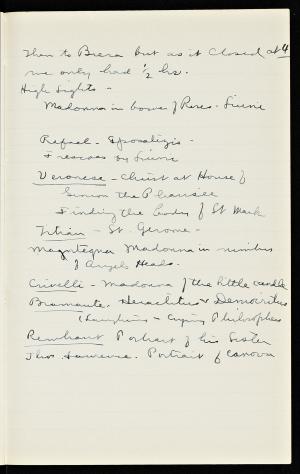 Then to Brera but as it closed at 4
we only had 1/2 hr.
High Lights -
Madonna in bower of Roses - Luini
Rafael - Sposalizio -
Frescoes by Luini
Veronese - Christ at House of
Simon the Pharisee
Finding the body of St Mark
Titian - St. Gerome -
Magntegna Madonna in nimbus
of Angels Heads.
Crivelli - Madonna of the little candle
Bramante. Heraclitus & Democritus
(Laughing - Crying Philosophers
Rembrant Portrait of his Sister
Thos. Lawrence. Portrait of Canova